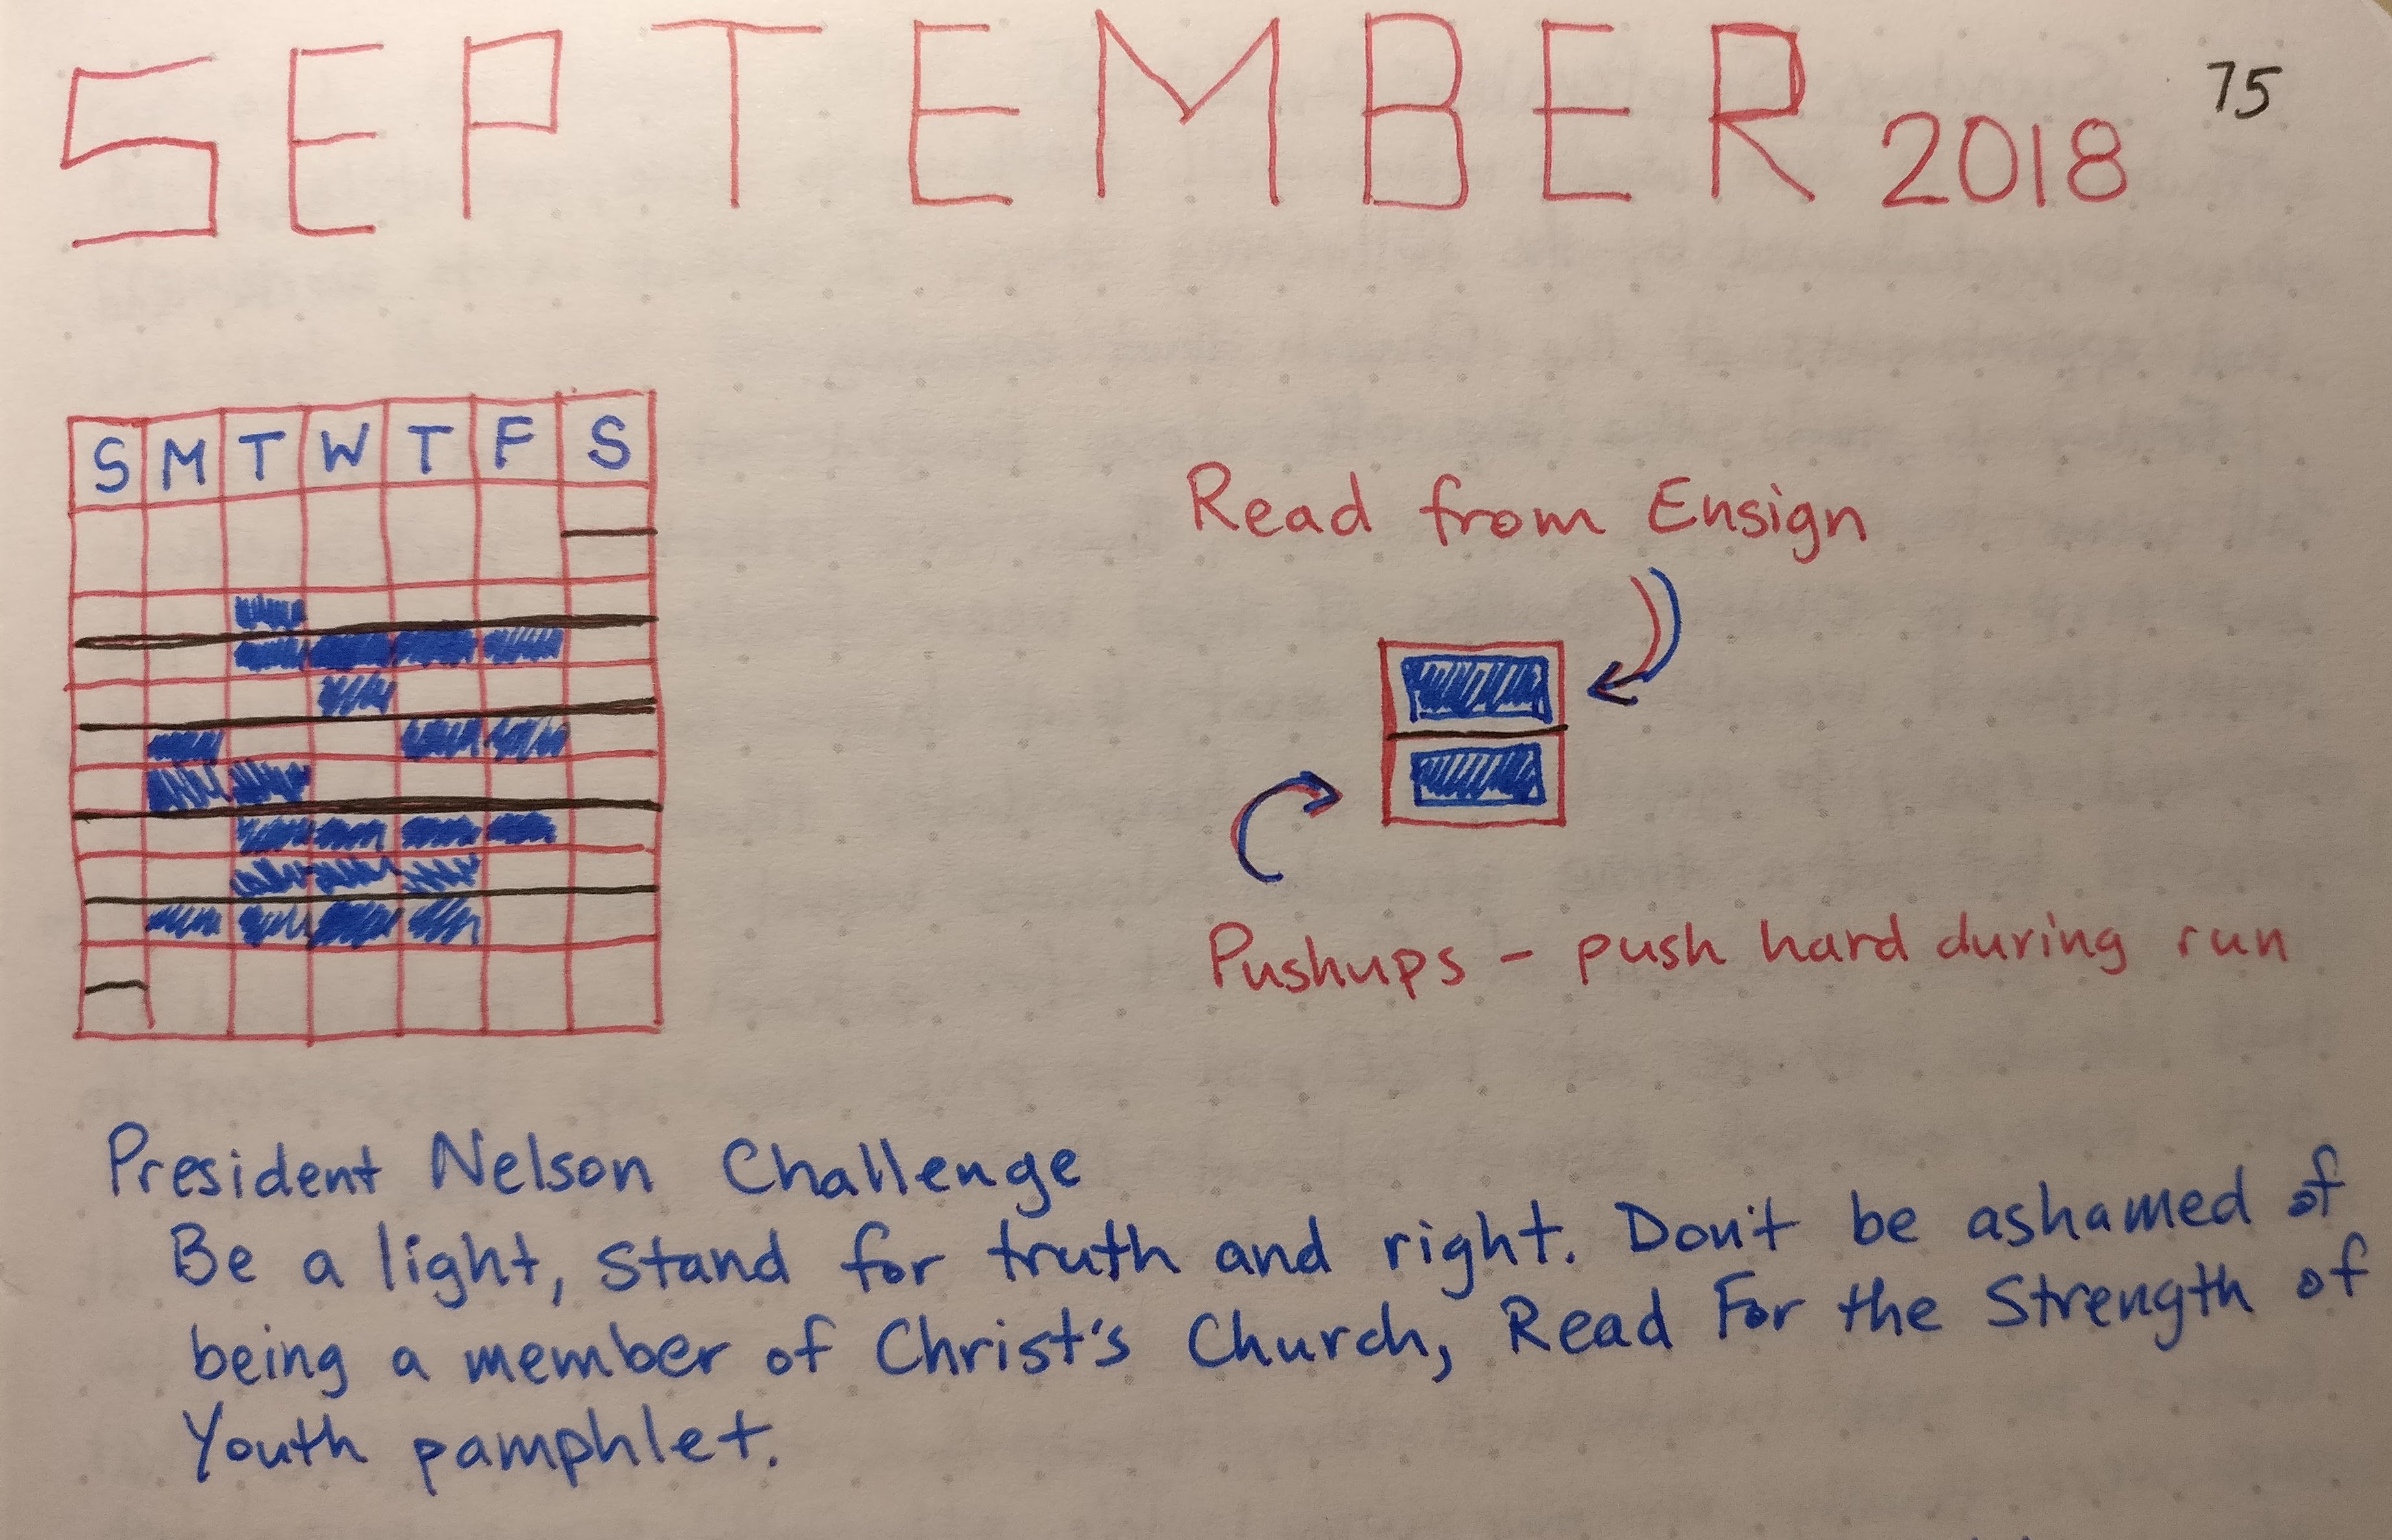 SEPTEMBER 2018
75
S M T W T F S
Read from Ensign
Pushups - push hard during run
President Nelson Challenge
Be a light, stand for truth and right. Don't be ashamed of
being a member of Christ's Church, Read For the Strength of
Youth pamphlet.